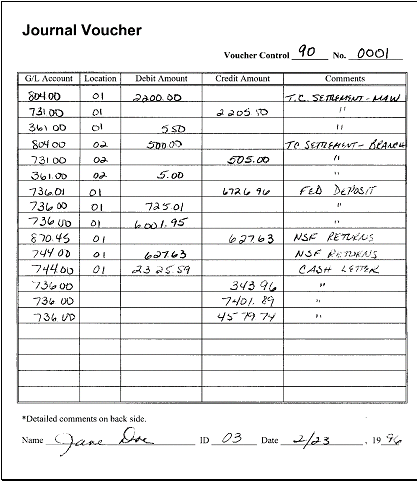 Journal Voucher
Voucher Control 90 No. 0001
G/L Account Location Debit Amount Credit Amount Comments
804.00 01 2200.00 T.C. SETTLEMENT - MAIN
731 00 01 2205 50 "
361 00 01 5 50 "
804 00 02 500 00 TC SETTLEMENT - BRANCH
731 00 02 505.00 "
361.00 02 5.00 "
736.01 01 6726 96 FED DEPOSIT
736 00 01 725.01 "
736 00 01 6001.95 "
870.45 01 627 63 NSF RETURNS
744 00 01 627.63 NSF RETURNS
744 00 01 2325 59 CASH LETTER
736 00 343 96 "
736 00 "
736 00 "
*Detailed comments on back side.
Name Jane Doe ID 03 Date 2/23, 19 96